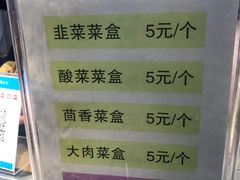 韭菜菜盒 5元/个
酸菜菜盒 5元/个
茴香菜盒 5元/个
大肉菜盒 5元/个